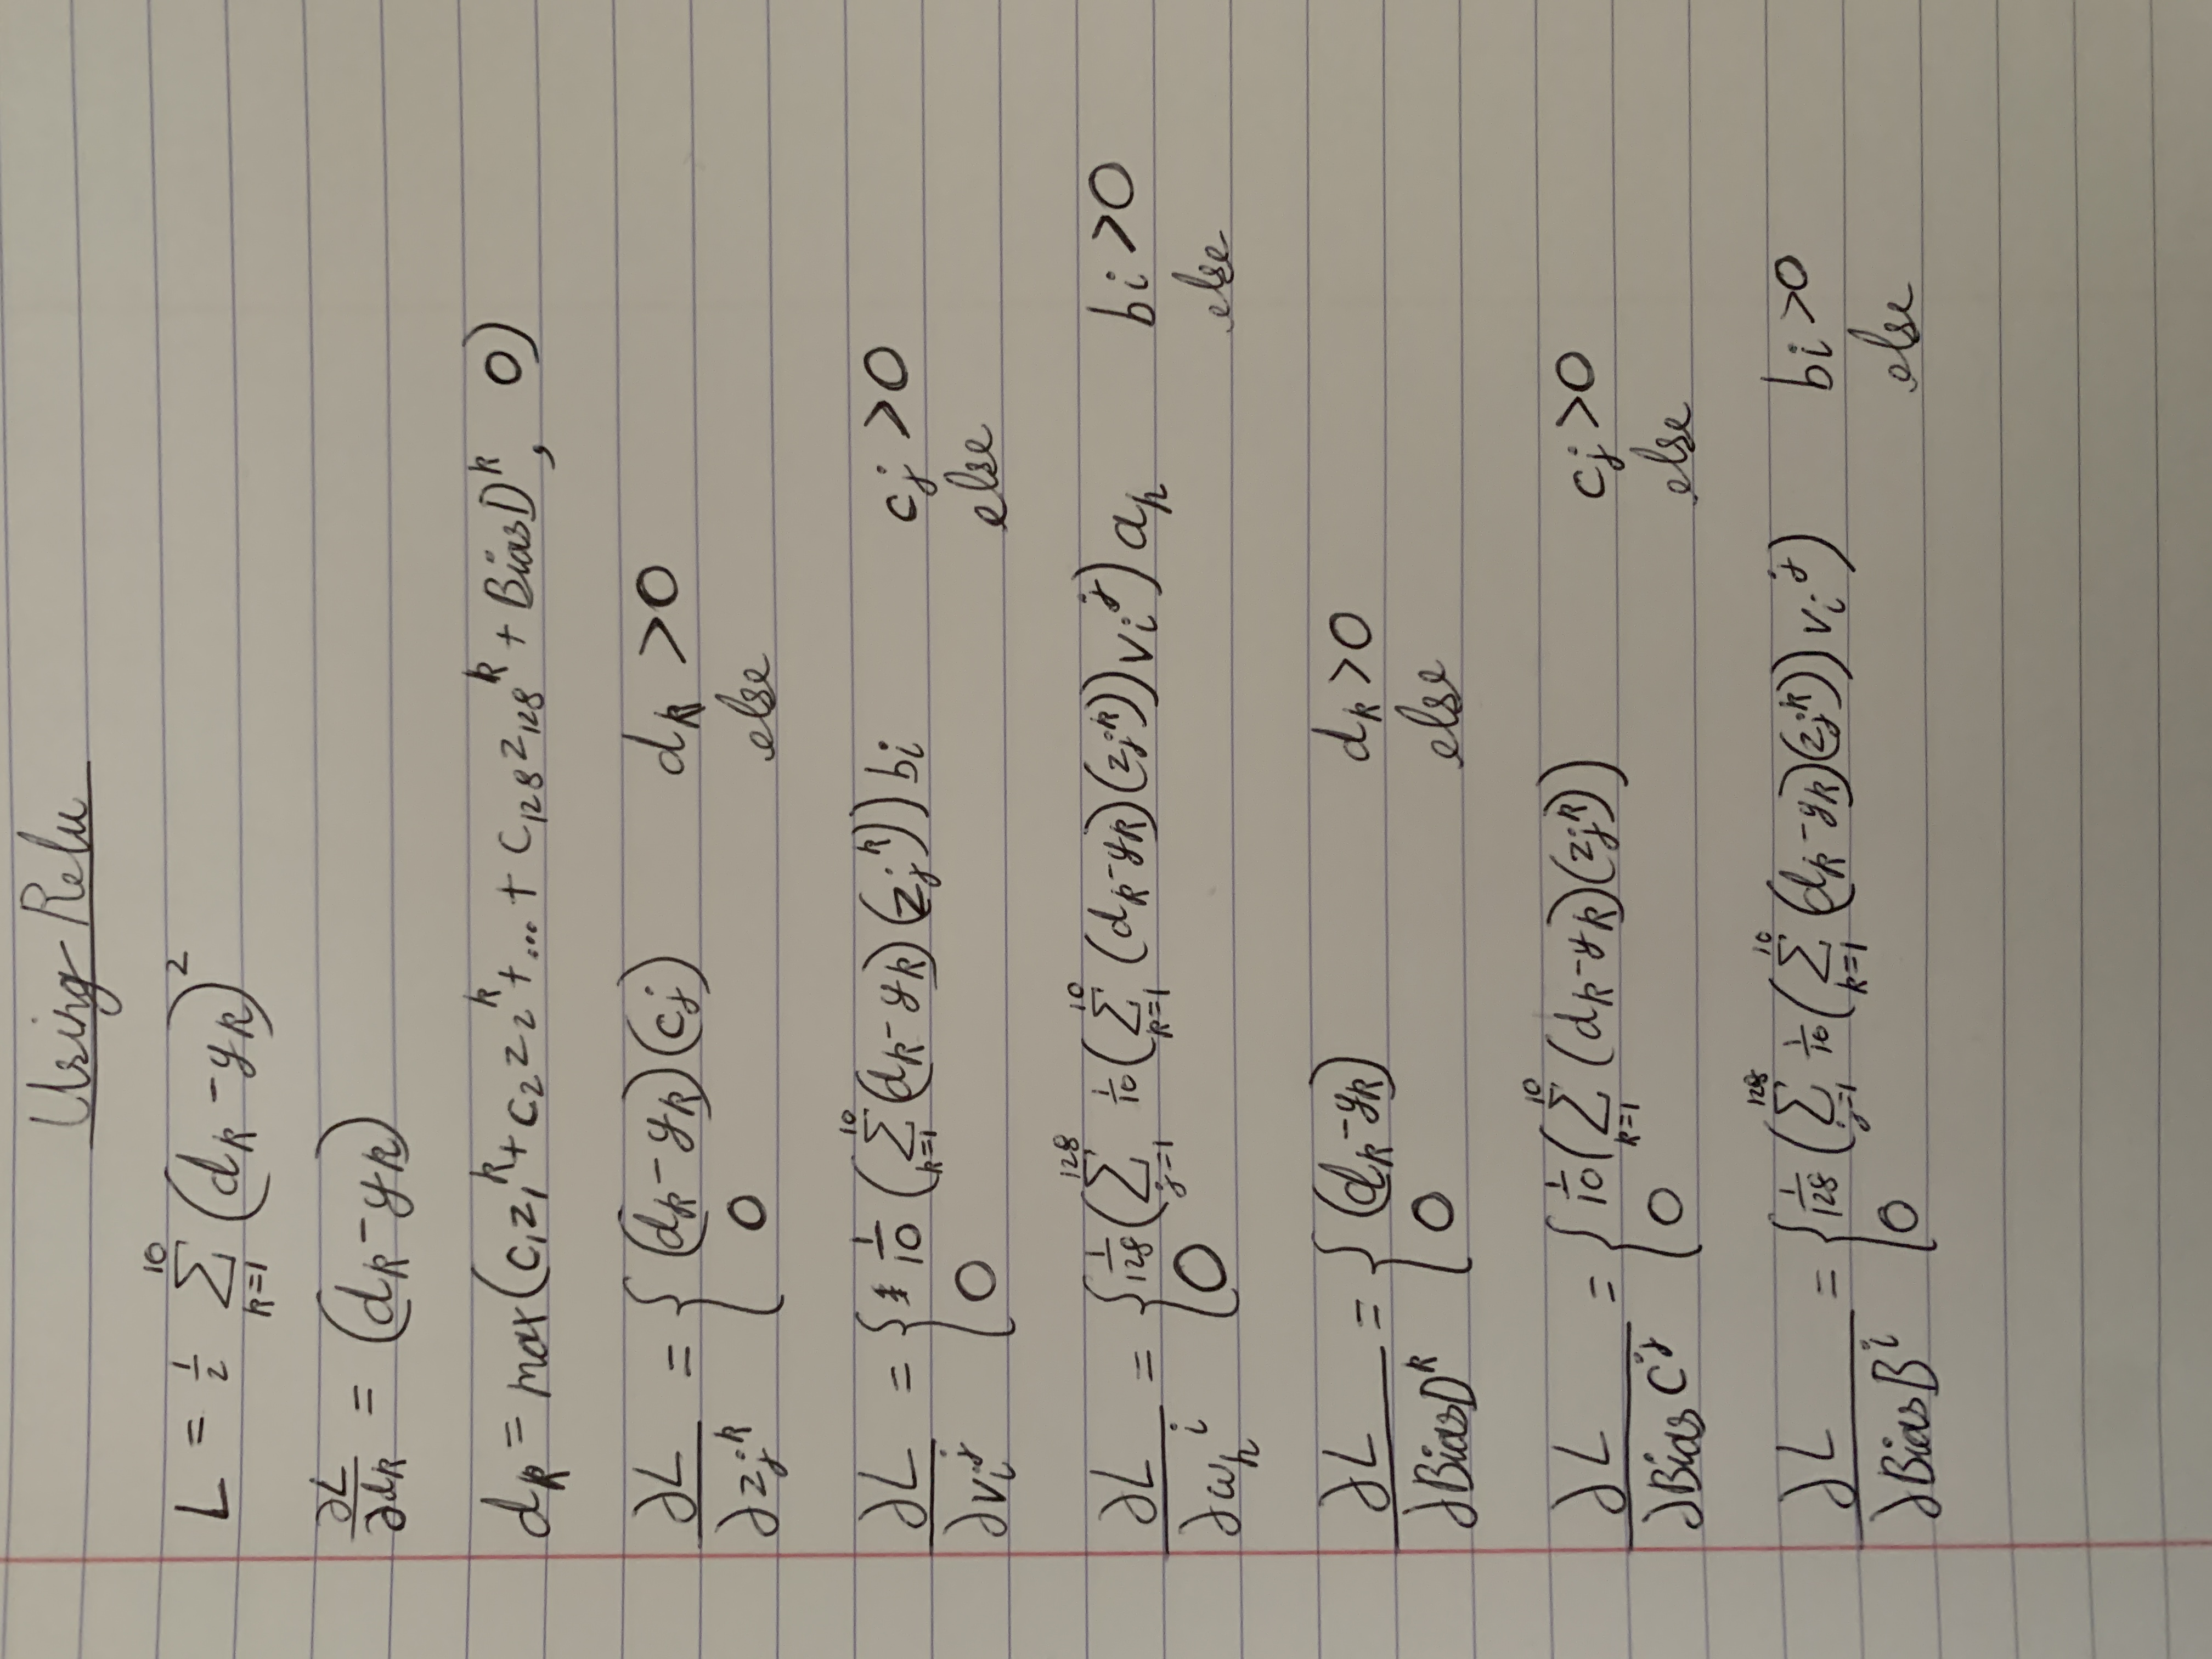 Using Relu
L = 1/2 ∑_{k=1}^{10} (d_k - y_k)^2
∂L/∂d_k = (d_k - y_k)
d_k = max(c_1 z_1^k + c_2 z_2^k + ... + c_128 z_128^k + BiasD^k, 0)
∂L/∂z_j^k = { (d_k - y_k)(c_j)   d_k > 0
0   else
∂L/∂v_i^j = { 1/10 (∑_{k=1}^{10} (d_k - y_k)(z_j^k)) b_i   c_j > 0
0   else
∂L/∂w_h^i = { 1/128 (∑_{j=1}^{128} 1/10 (∑_{k=1}^{10} (d_k - y_k)(z_j^k)) v_i^j) a_h   b_i > 0
0   else
∂L/∂BiasD^k = { (d_k - y_k)   d_k > 0
0   else
∂L/∂Bias C^j = { 1/10 (∑_{k=1}^{10} (d_k - y_k)(z_j^k))   c_j > 0
0   else
∂L/∂BiasB^i = { 1/128 (∑_{j=1}^{128} 1/10 (∑_{k=1}^{10} (d_k - y_k)(z_j^k)) v_i^j)   b_i > 0
0   else